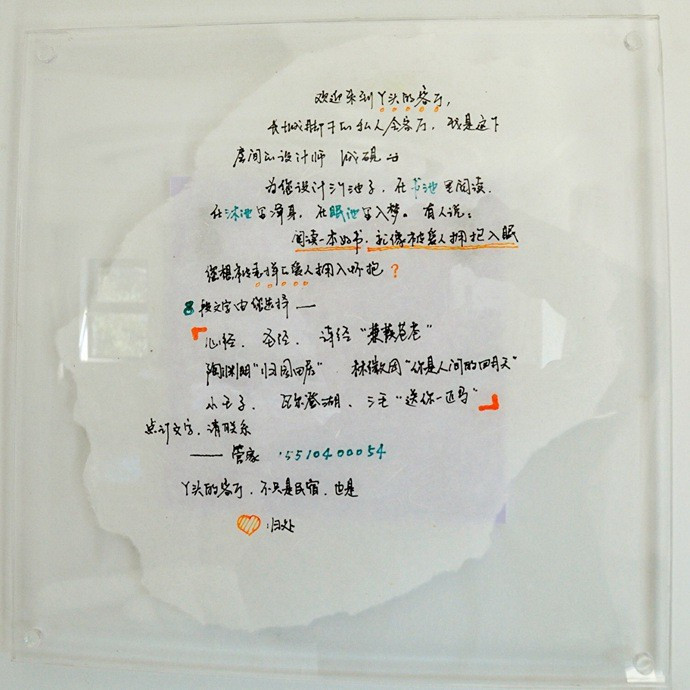 欢迎来到丫头的客厅,
长城脚下的私人会客厅. 我是这个
房间的设计师
为您设计三个池子. 在书池里阅读.
在沐池里 在眠池里入梦。有人说:
阅读一本好书. 就像被爱人拥抱入眠
您想被 爱人拥入怀抱?
8段文字由您选择——
「心经. 圣经. 诗经“蒹葭苍苍”
陶渊明“归园田居” 林徽因“你是人间的四月天”
小王子. 瓦尔登湖. 三毛“送你一匹马”」
点订文字. 请联系
—— 管家 15510400054
丫头的客厅. 不只是民宿. 也是
归处